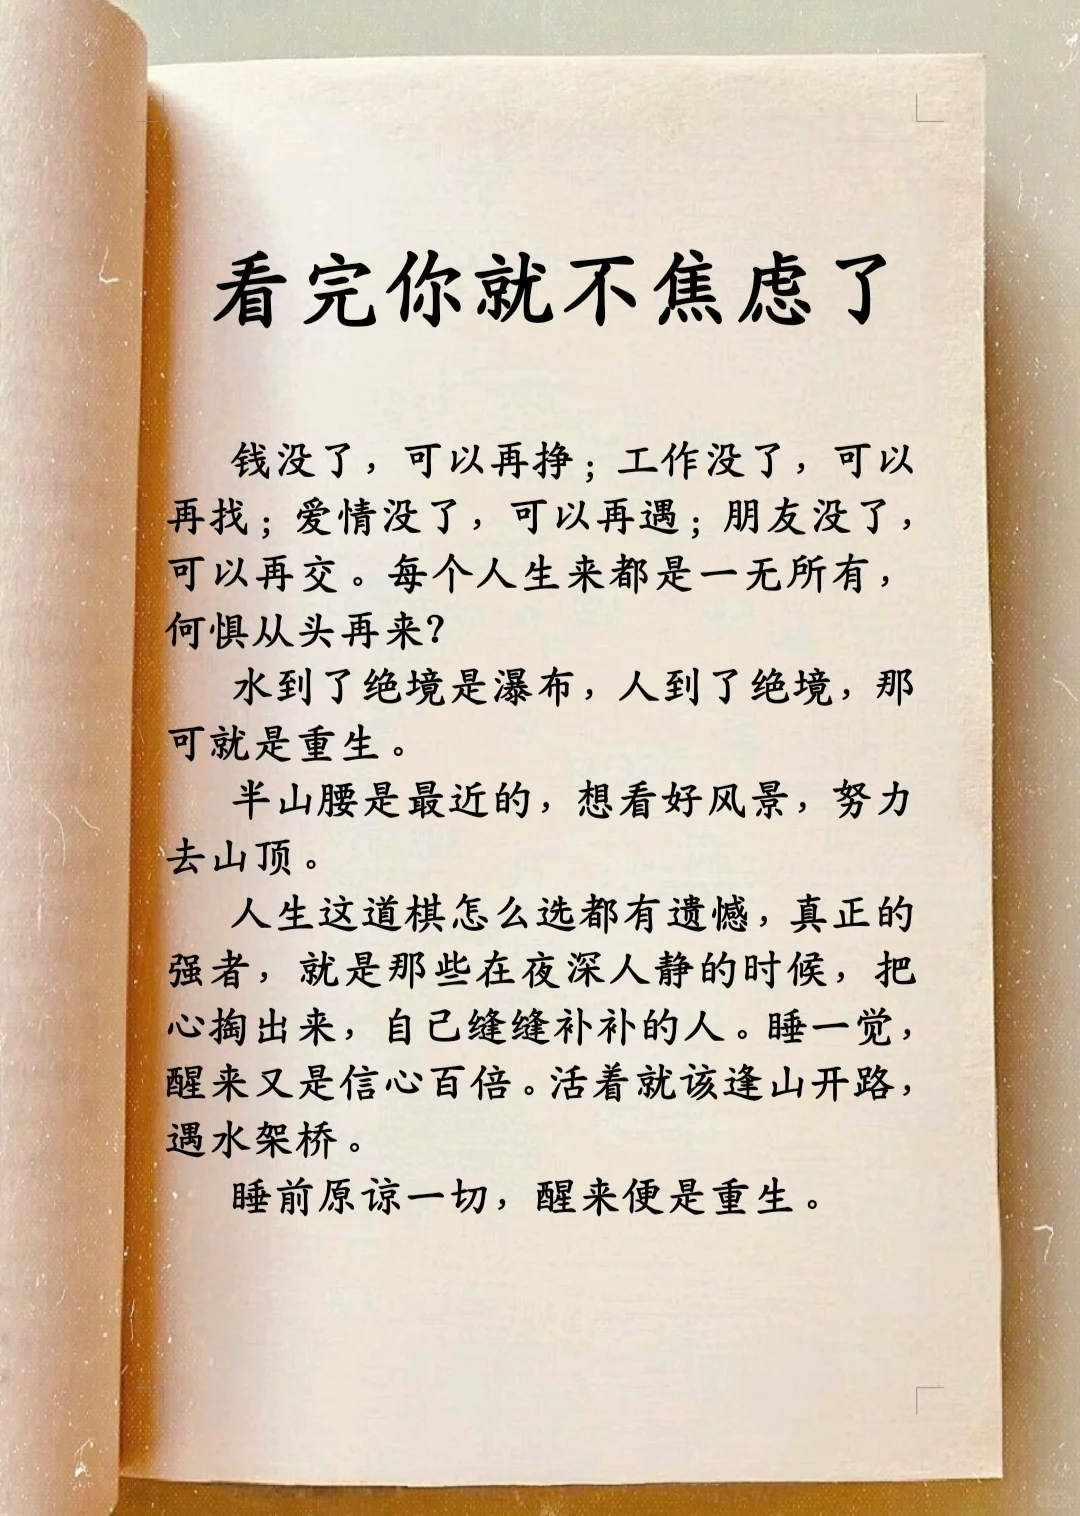 看完你就不焦虑了
钱没了，可以再挣；工作没了，可以
再找；爱情没了，可以再遇；朋友没了，
可以再交。每个人生来都是一无所有，
何惧从头再来？
水到了绝境是瀑布，人到了绝境，那
可就是重生。
半山腰是最近的，想看好风景，努力
去山顶。
人生这道棋怎么选都有遗憾，真正的
强者，就是那些在夜深人静的时候，把
心掏出来，自己缝缝补补的人。睡一觉，
醒来又是信心百倍。活着就该逢山开路，
遇水架桥。
睡前原谅一切，醒来便是重生。